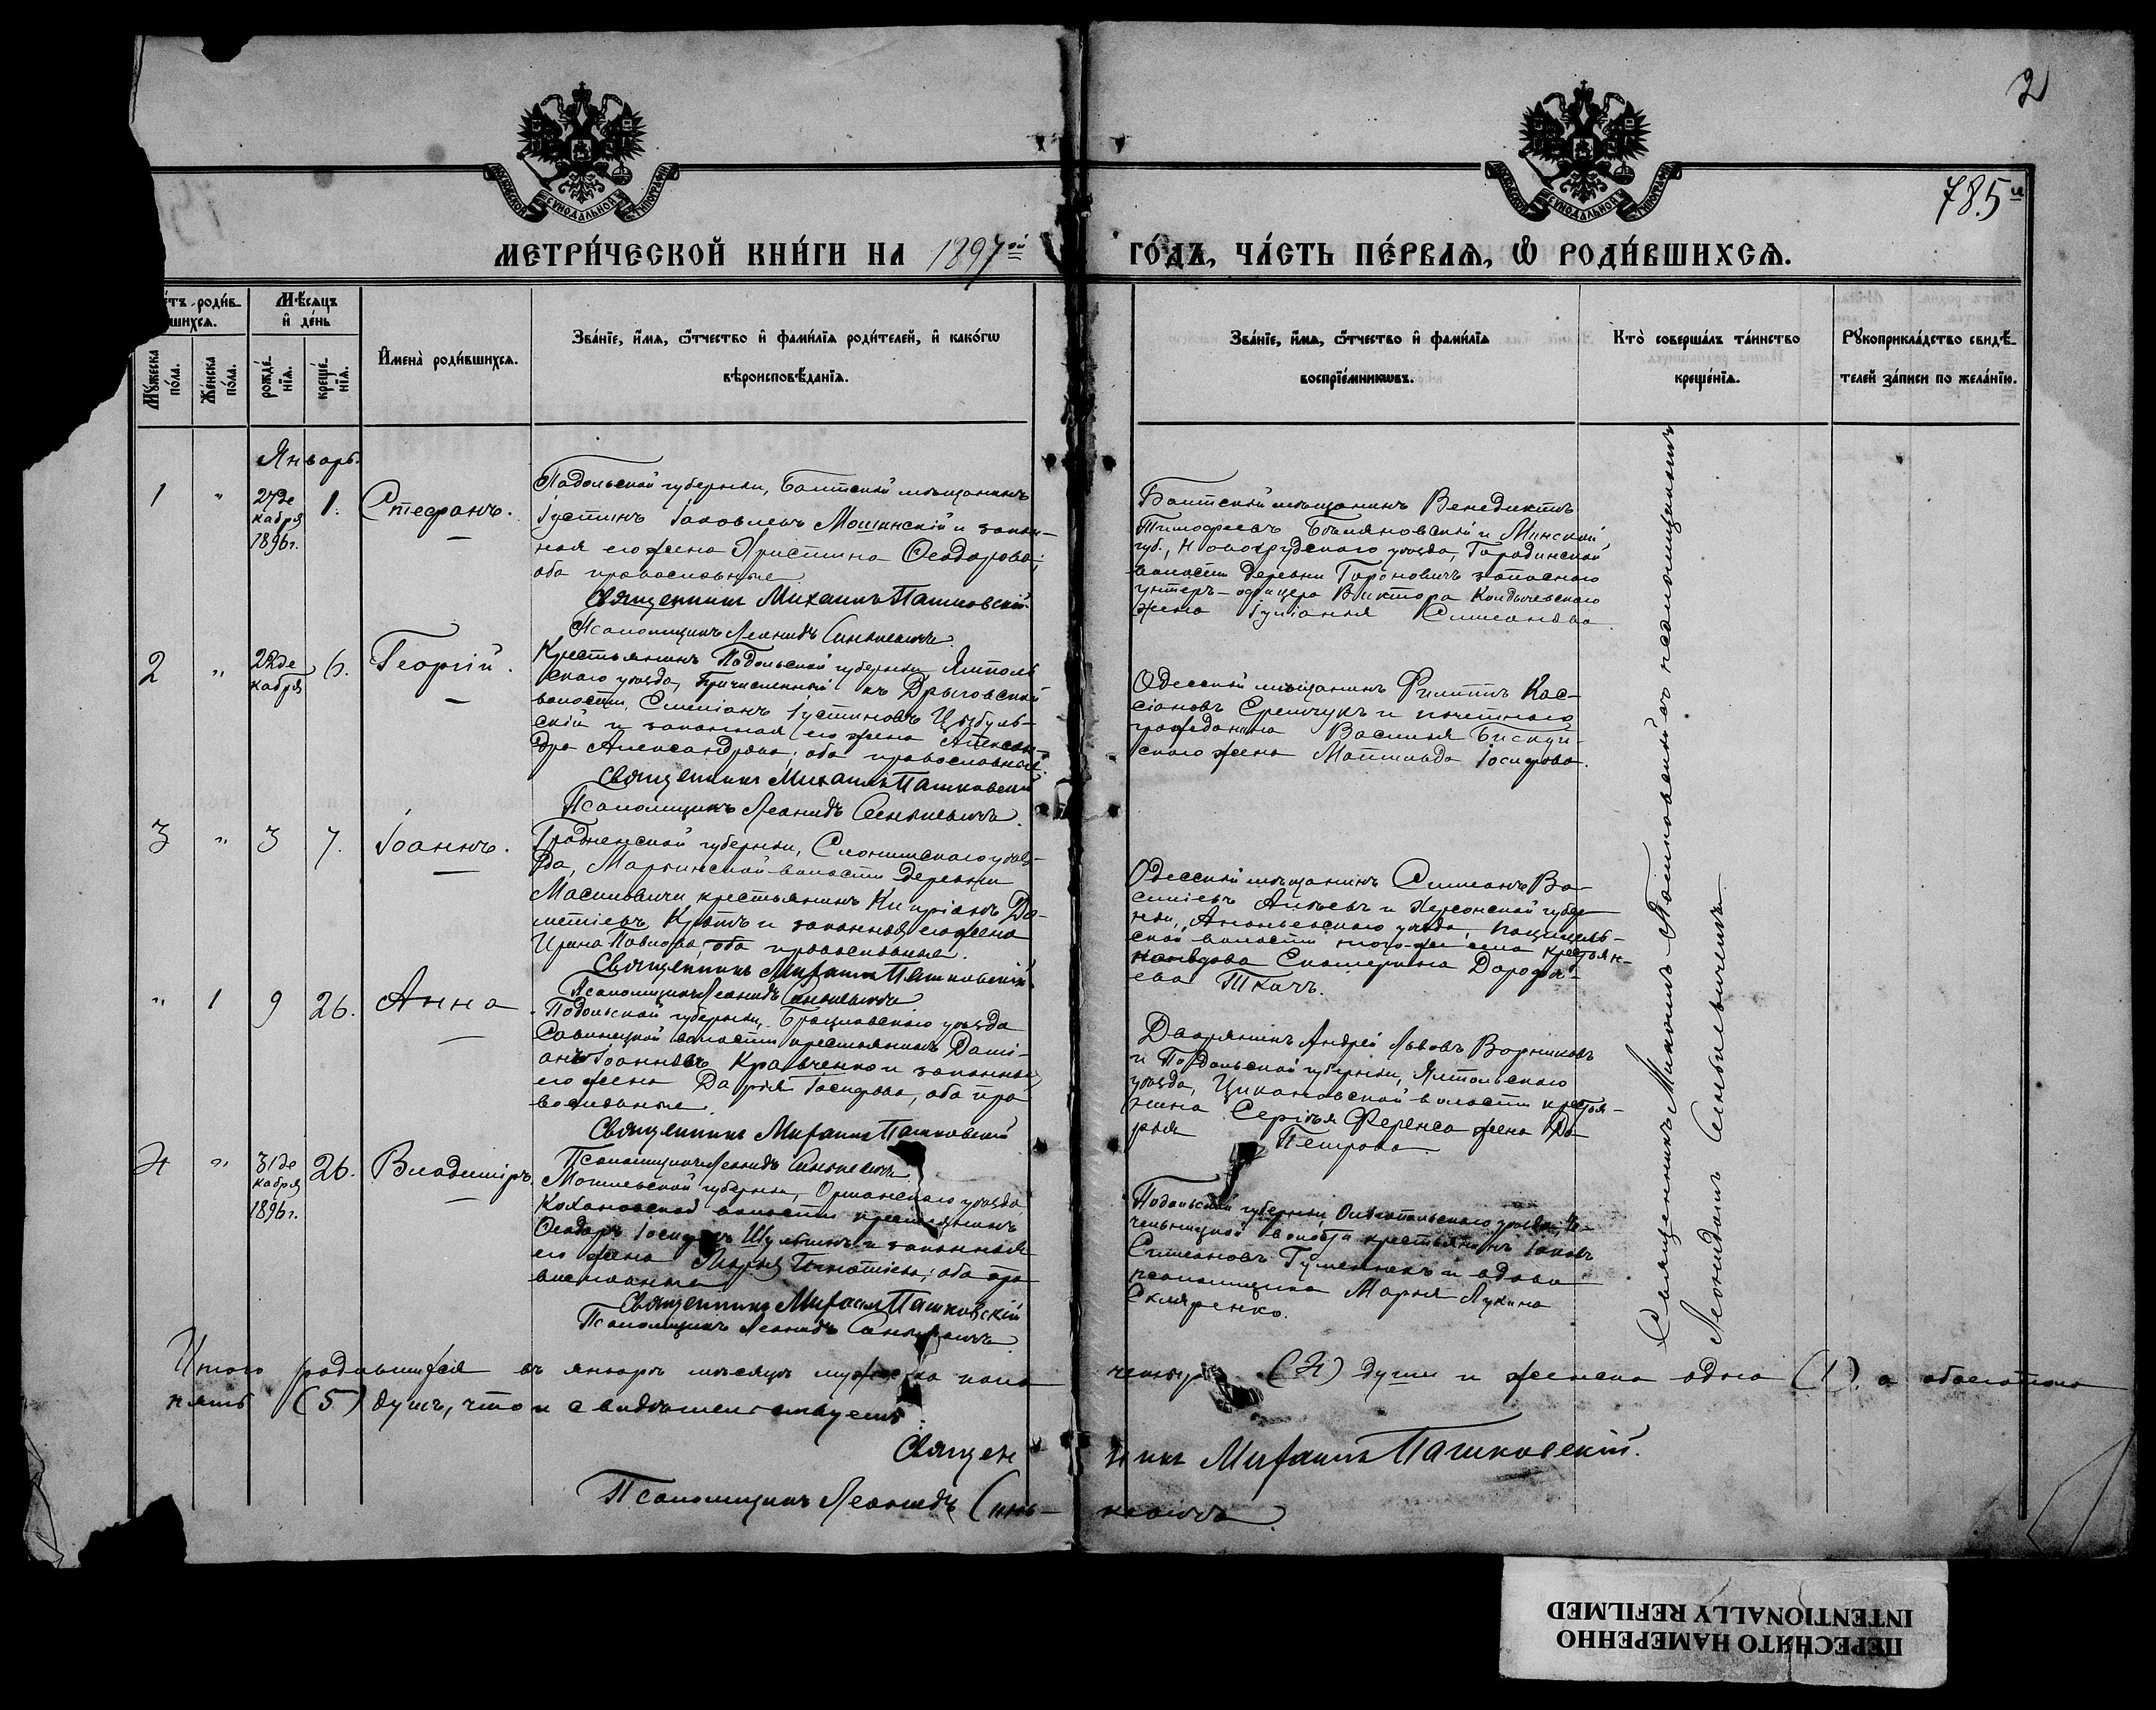 2
785
МОСКОВСКОЙ СѴНОДАЛЬНОЙ ТИПОГРАФІИ
МОСКОВСКОЙ СѴНОДАЛЬНОЙ ТИПОГРАФІИ
МЕТРИ́ЧЕСКОЙ КНИ́ГИ НА 1897ой ГО́ДЪ, ЧА́СТЬ ПЕ́РВАѦ, Ѡ РОДИ́ВШИХСѦ.
роди́в-
шихсѧ.
Мѣ́сѧцъ
и҆ де́нь
Мꙋ́жеска по́ла.
Же́нска по́ла.
рожде́нїѧ.
креще́нїѧ.
И҆мена̀ роди́вшихсѧ.
Зва́нїе, и҆́мѧ, ѻ҆́тчество и҆ фами́лїѧ роди́телей, и҆ како́гѡ
вѣроисповѣ́данїѧ.
Зва́нїе, и҆́мѧ, ѻ҆́тчество и҆ фами́лїѧ
воспрїе́мникѡвъ.
Кто̀ соверша́лъ та́инство
креще́нїѧ.
Рꙋкоприкла́дство свидѣ́-
телей за́писи по жела́нїю.
Январь.
1 " 27 де
кабря
1896 г.
1. Стефанъ.
Подольской губерніи, Балтскій мѣщанинъ
Іустинъ Іаковлевъ Мошинскій и закон-
ная его жена Христина Ѳеодорова;
оба православные.
Священникъ Михаилъ Пашковскій.
Псаломщикъ Леонидъ Синькевичъ.
Балтскій мѣщанинъ Венедиктъ
Тимофеевъ и Минской
губ., Новогрудского уѣзда, Городинской
волости деревни запасного
унтеръ-офицера Виктора
жена Іуліанія Симеонова.
2 " 22 де
кабря
6. Георгій.
Крестьянинъ Подольской губерніи Ямполь
ского уѣзда, причисленный къ Дрыговской
волости, Симеіанъ Іустиновъ Цыбуль-
скій и законная его жена Алексан-
дра Александрова; оба православные.
Священникъ Михаилъ Пашковскій
Псаломщикъ Леонидъ Синькевичъ.
Одесскій мѣщанинъ Филиппъ Кас-
сіановъ Еремчукъ и почетного
гражданина Василія Бискуп-
ского жена Матильда Іосифова.
3 " 3 7. Іоаннъ.
Гродненской губерніи, Слонимского уѣз-
да, Марьинской волости деревни
крестьянинъ Кипріанъ До-
метіевъ и законная его жена
Ирина Павлова; оба православные.
Священникъ Михаилъ Пашковскій.
Псаломщикъ Леонидъ Синькевичъ
Одесскій мѣщанинъ Симеонъ Ва-
силіевъ и Херсонской губер-
ніи, Ананьевского уѣзда,
ской волости того-же села крестьян-
Екатерина Дорофе-
ева Ткачъ.
" 1 9 26. Анна
Подольской губерніи, Брацлавского уѣзда
Савинецкой волости крестьянинъ Даміанъ Іоанновъ Кравченко и законная
его жена Дарія Іосифова, оба пра-
вославные.
Священникъ Михаилъ Пашковскій
Псаломщикъ Леонидъ Синькевичъ
Дворянинъ Андрей Львовъ Ворниковъ
и Подольской губерніи, Ямпольского
уѣзда, Цекановской волости крестья-
нина Сергѣя Ференса жена Да-
рья Петрова.
4 " 31 де
кабря
1896 г.
26. Владиміръ.
Могилевской губерніи, Оршанского уѣзда
Кохановской волости крестьянинъ
Ѳеодоръ и законная
его жена Марія Игнатіева; оба пра-
вославные
Священникъ Михаилъ Пашковскій
Псаломщикъ Леонидъ Синькевичъ.
Подольской губерніи, Ольгопольского уѣзда, Че-
чельницкой волости крестьянинъ Іаковъ
Симеоновъ Гуменюкъ и вдова
псаломщика Марія Лукина
Скляренко.
Священникъ Михаилъ Пашковскій съ псаломщикомъ
Леонидомъ Синькевичемъ.
Итого родившихся въ январѣ мѣсяцѣ мужеска пола четыре (4) души и женска одна (1) а обоего пола
пять (5) душъ, что и свидѣтельствуемъ.
Священникъ Михаилъ Пашковскій.
Псаломщикъ Леонидъ Синькевичъ.
ПЕРЕСНЯТО НАМЕРЕННО
INTENTIONALLY REFILMED